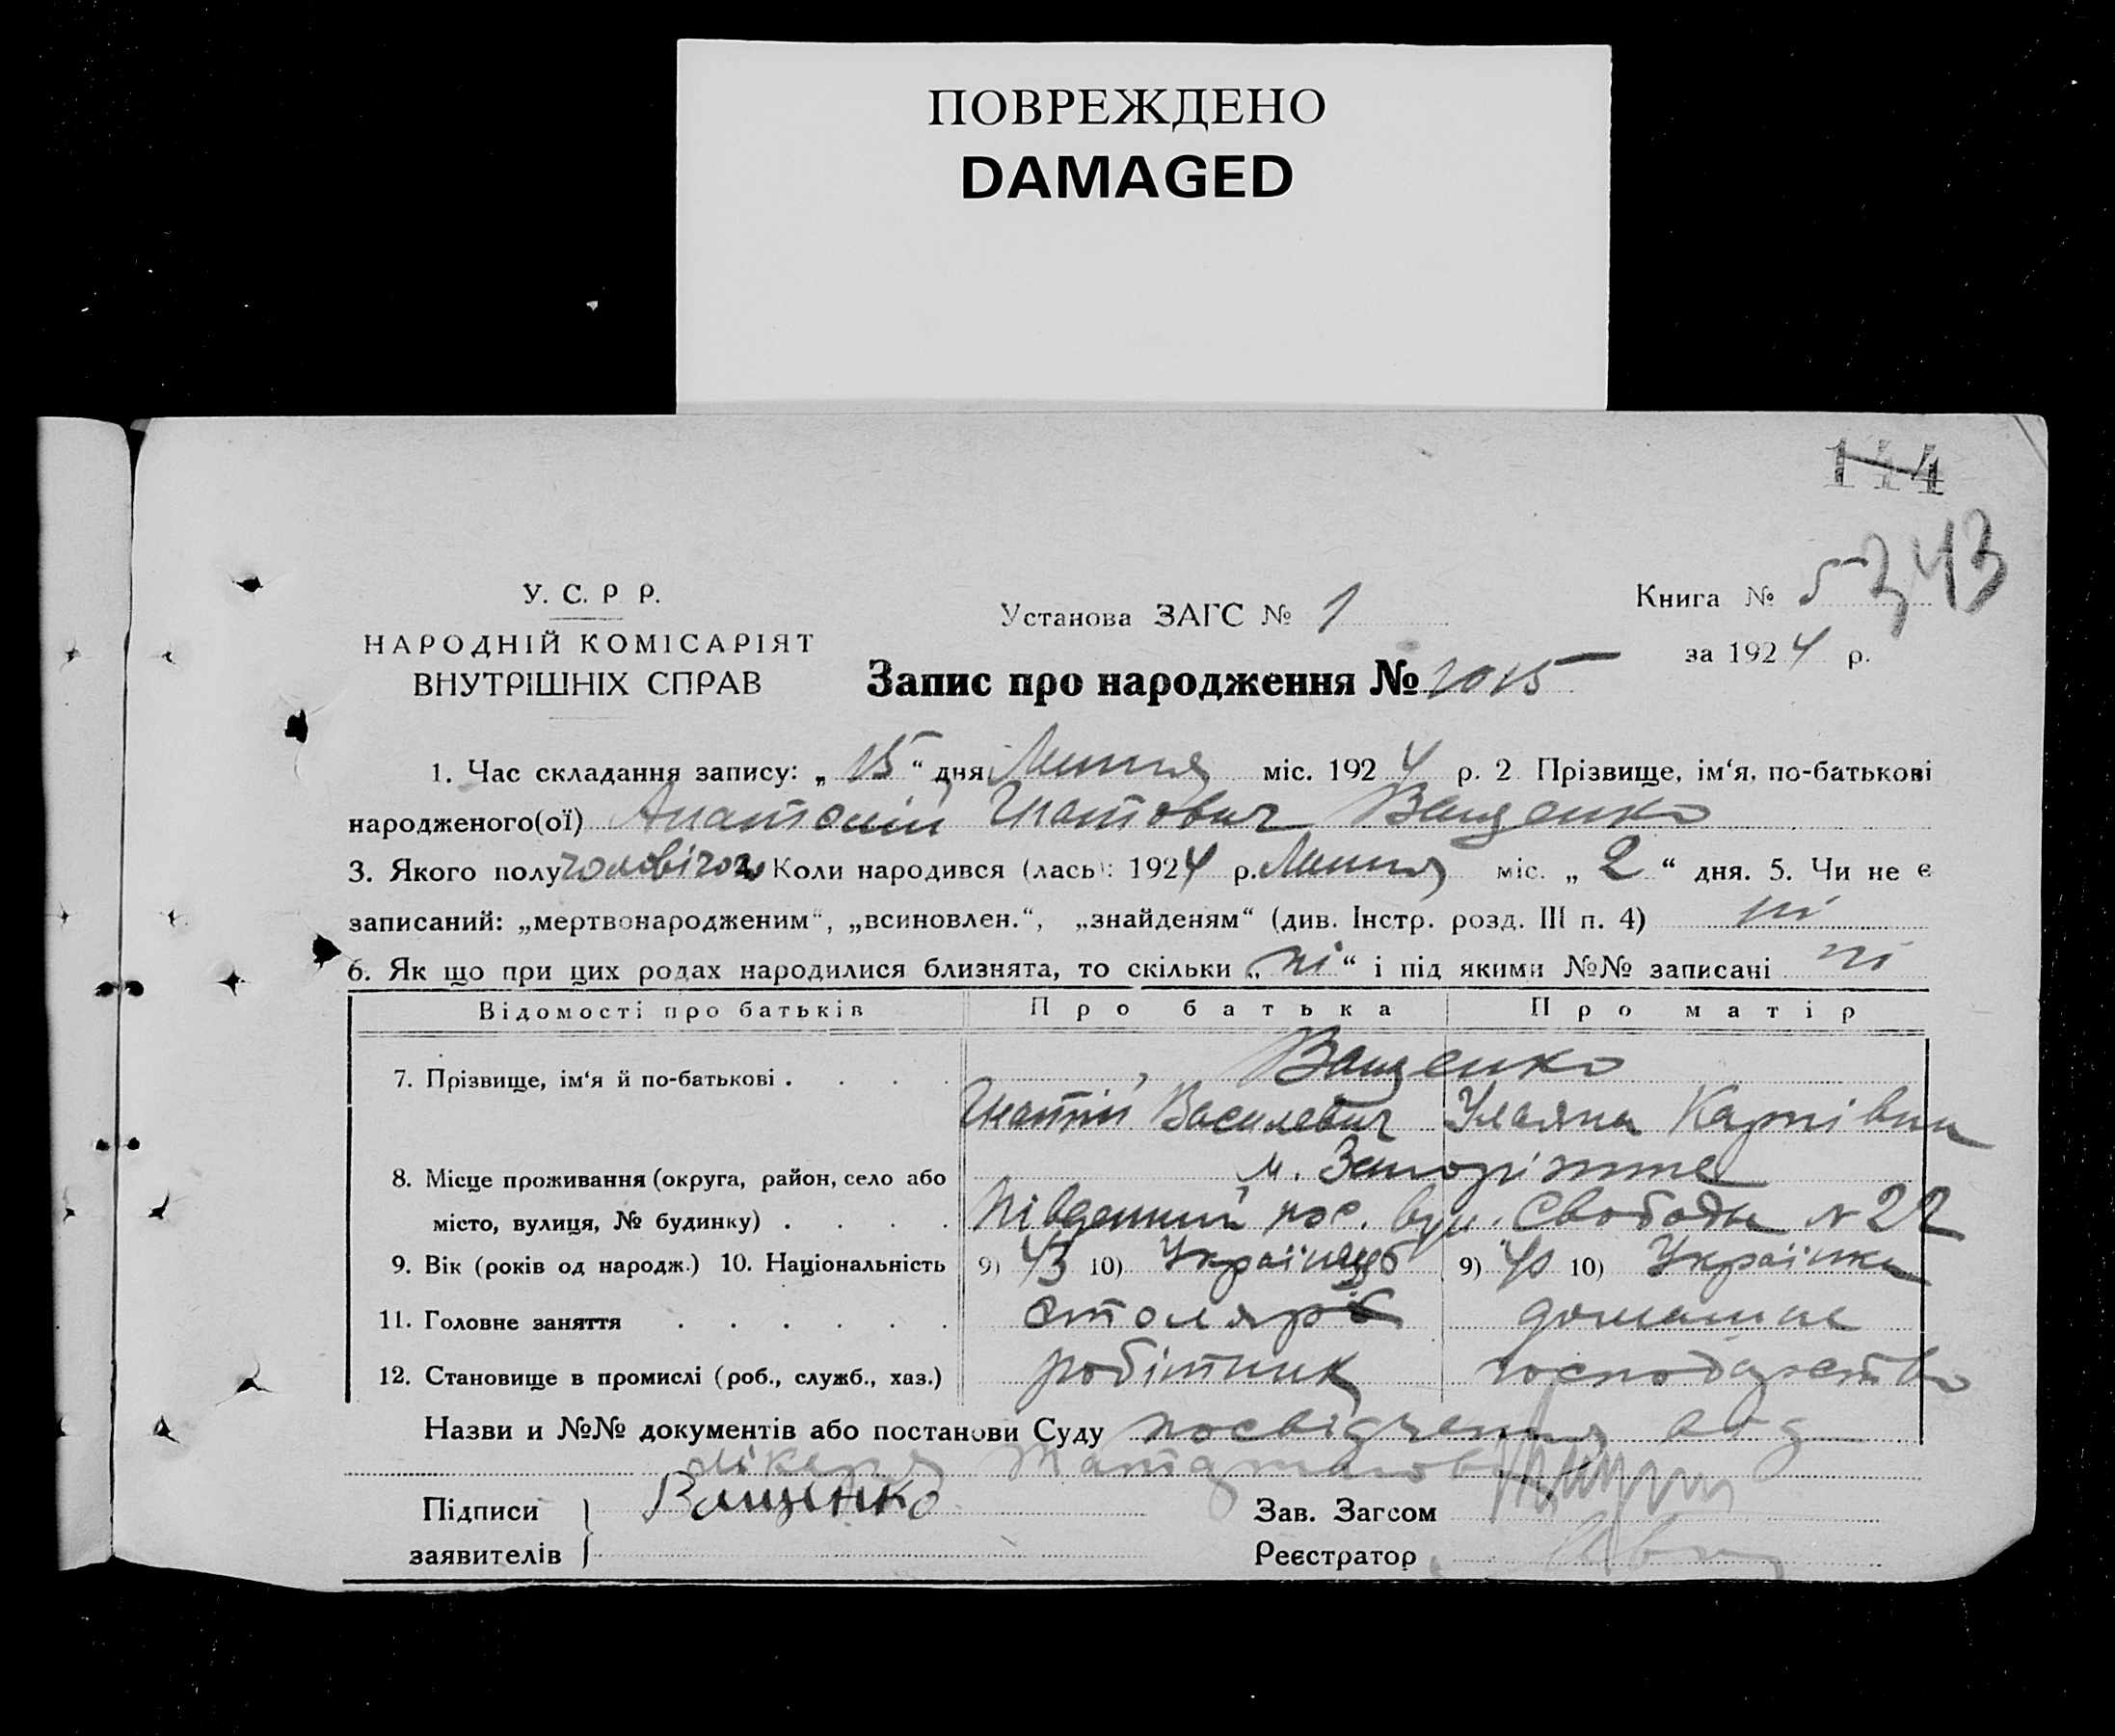 ПОВРЕЖДЕНО
DAMAGED
144
343
У. С. Р Р.
НАРОДНІЙ КОМІСАРІЯТ
ВНУТРІШНІХ СПРАВ
Установа ЗАГС № 1
Книга № 5
за 1924 р.
Запис про народження № 1015
1. Час складання запису: „15“ дня Липня міс. 1924 р. 2 Прізвище, ім‘я, по-батькові
народженого(ої) Анатолій Гнатович Ващенко
3. Якого полу чоловічого 4. Коли народився (лась): 1924 р. Липня міс. „2“ дня. 5. Чи не є
записаний: „мертвонародженим“, „всиновлен.“, „знайденям“ (див. Інстр. розд. III п. 4) ні
6. Як що при цих родах народилися близнята, то скільки „ні“ і під якими №№ записані ні
Відомості про батьків Про батька Про матір
7. Прізвище, ім‘я й по-батькові . . . . Ващенко
Гнатій Василевич Уляяна Карпівна
8. Місце проживання (округа, район, село або м. Запоріжже
місто, вулиця, № будинку) . . . . Південний пос. вул. Свободи № 22
9. Вік (років од народж.) 10. Національність 9) 43 10) Українець 9) 40 10) Українка
11. Головне заняття . . . . . . столяр домашнє
12. Становище в промислі (роб., служб., хаз.) робітник господарство
Назви и №№ документів або постанови Суду посвідчення від
лікаря
Підписи Ващенко Зав. Загсом
заявителів Реєстратор